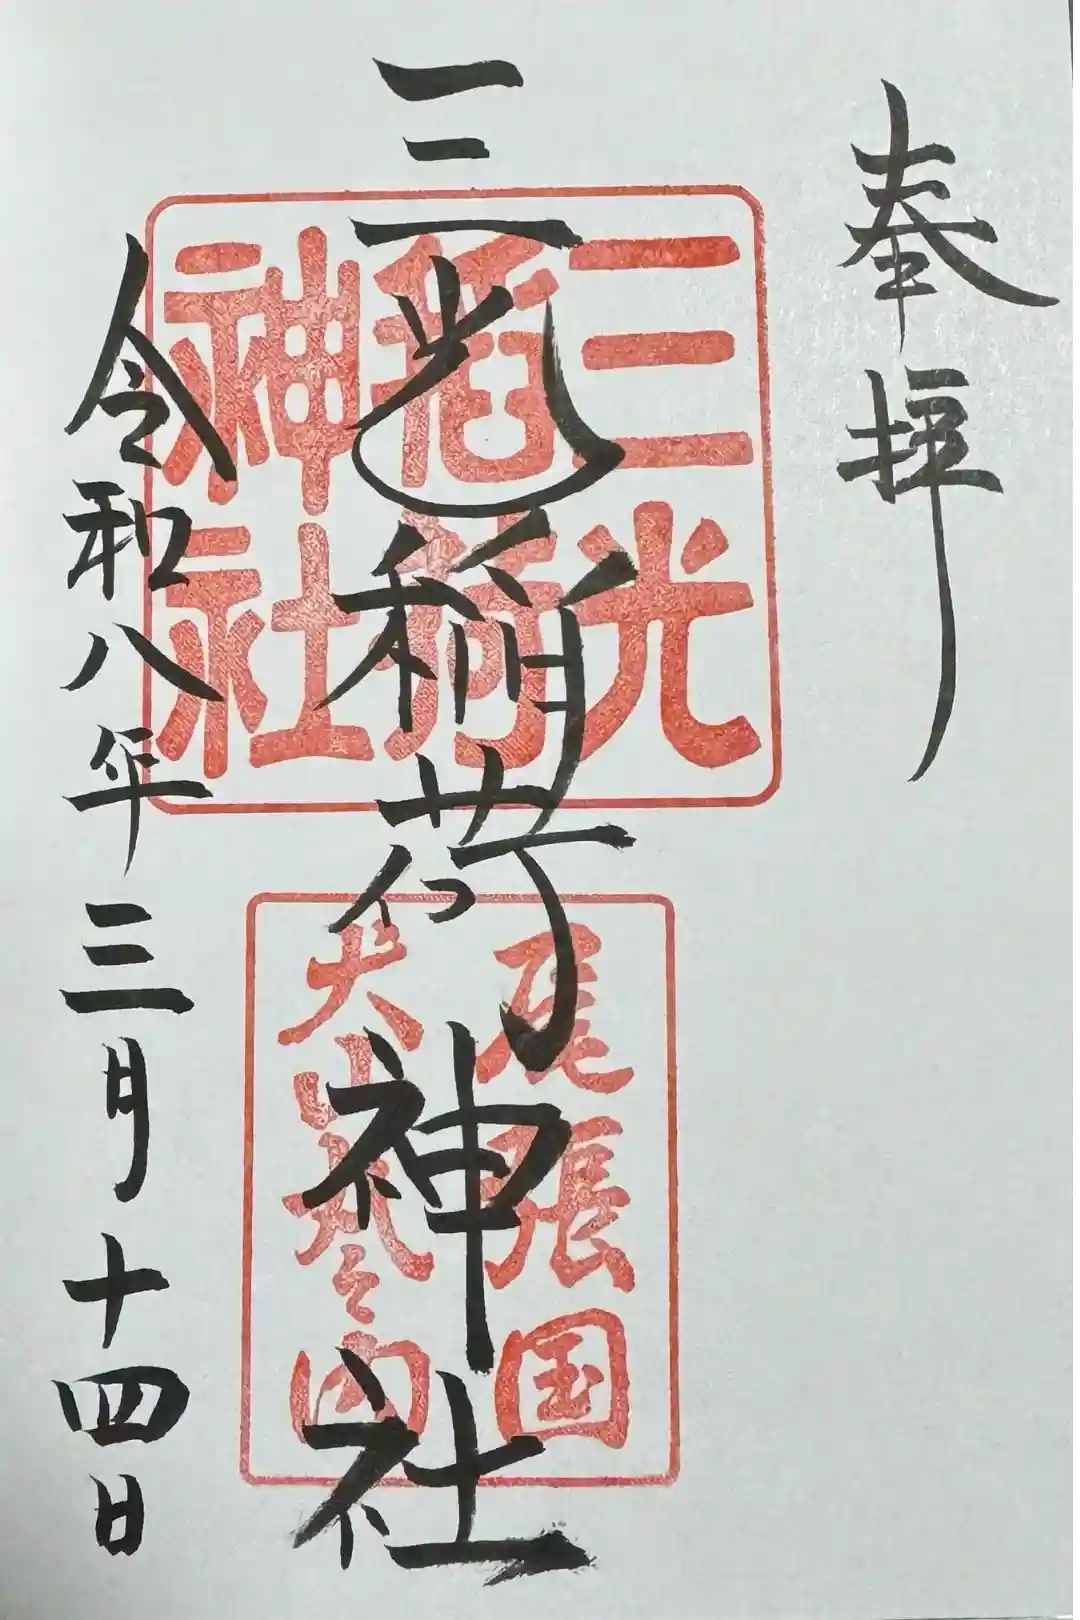 奉拝
三光稲荷神社
令和八年三月十四日
三光
稲荷
神社
尾張国
犬山城之内